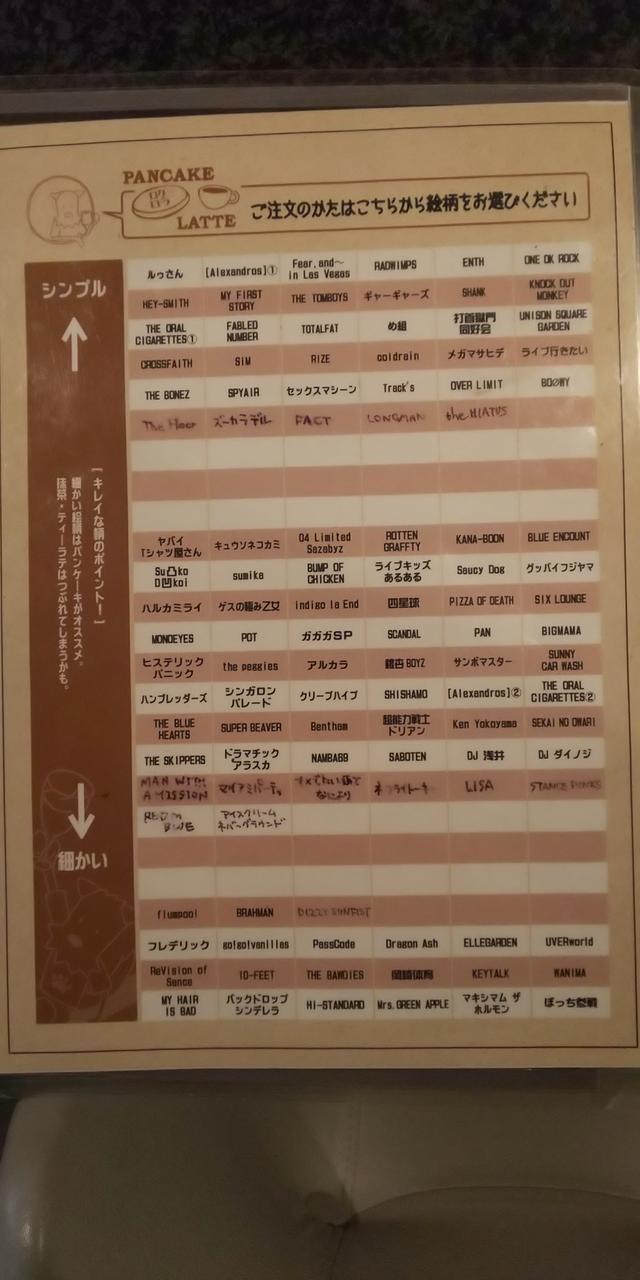 PANCAKE
ロク
ロウ
LATTE
ご注文のかたはこちらから絵柄をお選びください
シンプル
[キレイな柄のポイント!]
細かい絵柄はパンケーキがオススメ。
抹茶・ティーラテはつぶれてしまうかも。
細かい
ルゥさん [Alexandros]① Fear,and〜 in Las Vegas RADWIMPS ENTH ONE OK ROCK
HEY-SMITH MY FIRST STORY THE TOMBOYS ギャーギャーズ SHANK KNOCK OUT MONKEY
THE ORAL CIGARETTES① FABLED NUMBER TOTALFAT め組 打首獄門同好会 UNISON SQUARE GARDEN
CROSSFAITH SIM RIZE coldrain メガマサヒデ ライブ行きたい
THE BONEZ SPYAIR セックスマシーン Track's OVER LIMIT BOØWY
The Floor ズーカラデル FACT LONGMAN the HIATUS
ヤバイTシャツ屋さん キュウソネコカミ 04 Limited Sazabyz ROTTEN GRAFFTY KANA-BOON BLUE ENCOUNT
Su凸ko D凹koi sumika BUMP OF CHICKEN ライブキッズあるある Saucy Dog グッバイフジヤマ
ハルカミライ ゲスの極み乙女 indigo la End 四星球 PIZZA OF DEATH SIX LOUNGE
MONOEYES POT ガガガSP SCANDAL PAN BIGMAMA
ヒステリックパニック the peggies アルカラ 銀杏BOYZ サンボマスター SUNNY CAR WASH
ハンブレッダーズ シンガロンパレード クリープハイプ SHISHAMO [Alexandros]② THE ORAL CIGARETTES②
THE BLUE HEARTS SUPER BEAVER Bentham 超能力戦士ドリアン Ken Yokoyama SEKAI NO OWARI
THE SKIPPERS ドラマチックアラスカ NAMBA69 SABOTEN DJ 浅井 DJ ダイノジ
MAN WITH A MISSION マイアミパーティ なにより ネクライトーキー LiSA STANCE PUNKS
RED in BLUE アイスクリームネバーグラウンド
flumpool BRAHMAN DIZZY SUNFIST
フレデリック go!go!vanillas PassCode Dragon Ash ELLEGARDEN UVERworld
ReVision of Sence 10-FEET THE BAWDIES 岡崎体育 KEYTALK WANIMA
MY HAIR IS BAD バックドロップシンデレラ HI-STANDARD Mrs.GREEN APPLE マキシマム ザ ホルモン ぼっち参戦